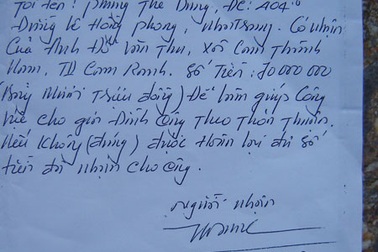 Tôi tên: Phùng Thế Dũng, ĐC: A04
Đường Lê Hồng Phong, Nha Trang. Có nhận
Của Anh Đỗ Văn Thu, Xã Cam Thành
Nam, TX Cam Ranh. Số Tiền: 70 000 000
(Bảy Mươi Triệu đồng) Để làm giúp Công
Việc cho gia Đình Ông Theo Thỏa Thuận.
Nếu Không (đúng) được Hoàn lại đủ số
tiền đã nhận cho ông.
Người nhận